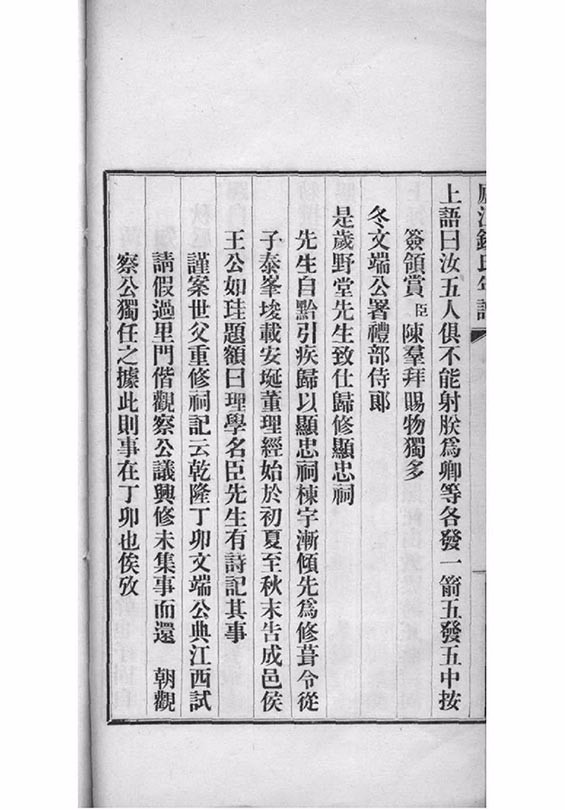 廬江錢氏年譜
上語曰汝五人俱不能射朕爲卿等各發一箭五發五中按
簽領賞臣陳羣拜賜物獨多
冬文端公署禮部侍郎
是歲野堂先生致仕歸修顯忠祠
先生自黔引疾歸以顯忠祠棟宇漸傾先爲修葺令從
子泰峯埈載安埏董理經始於初夏至秋末告成邑侯
王公如珪題額曰理學名臣先生有詩記其事
謹案世父重修祠記云乾隆丁卯文端公典江西試
請假過里門偕觀察公議興修未集事而還 朝觀
察公獨任之據此則事在丁卯也俟攷